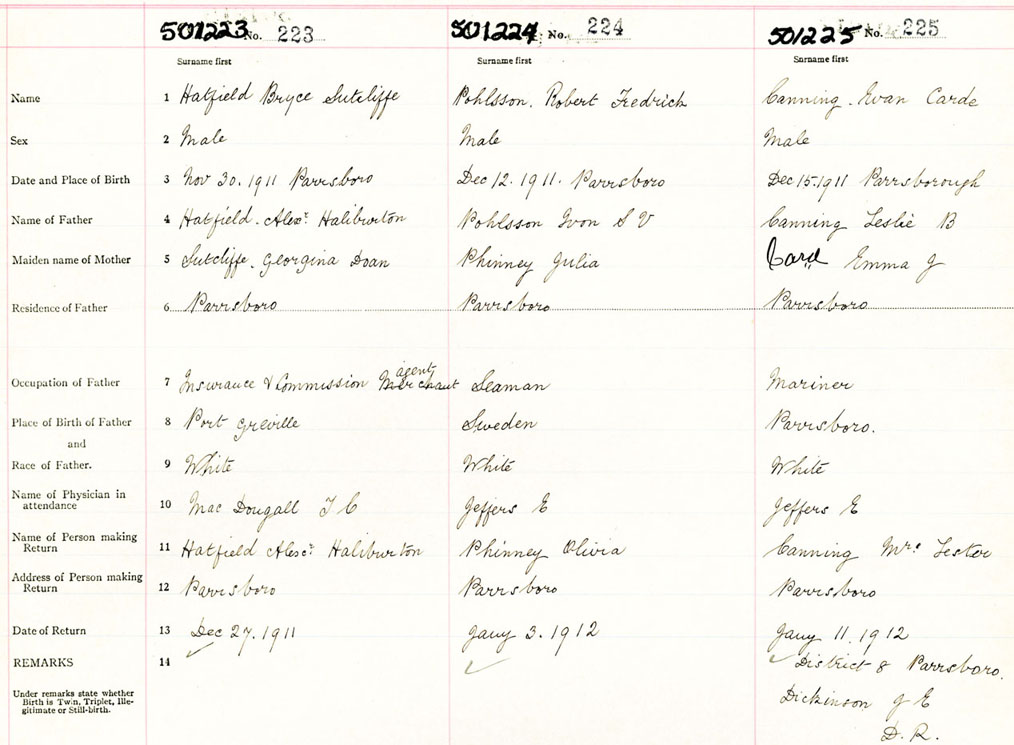 501223 No. 223 501224 No. 224 501225 No. 225
Surname first Surname first Surname first
Name 1 Hatfield Bryce Sutcliffe Pohlsson. Robert Fredrick Canning. Evan Carde
Sex 2 Male Male Male
Date and Place of Birth 3 Nov 30. 1911 Parrsboro Dec 12. 1911. Parrsboro Dec 15. 1911 Parrsborough
Name of Father 4 Hatfield. Alexr. Haliburton Pohlsson Ivon S V Canning Leslie B
Maiden name of Mother 5 Sutcliffe. Georgina Doan Phinney Julia Card Emma J
Residence of Father 6 Parrsboro Parrsboro Parrsboro
agent
Occupation of Father 7 Insurance & Commission Merchant Seaman Mariner
Place of Birth of Father 8 Port Greville Sweden Parrsboro.
and
Race of Father. 9 White White White
Name of Physician in
attendance 10 Mac Dougall T C Jeffers E Jeffers E
Name of Person making
Return 11 Hatfield Alexr Haliburton Phinney Olivia Canning Mrs Lester
Address of Person making
Return 12 Parrsboro Parrsboro Parrsboro
Date of Return 13 Dec 27. 1911 Jany 3. 1912 Jany 11. 1912
REMARKS 14 District 8 Parrsboro.
Under remarks state whether
Birth is Twin, Triplet, Ille-
gitimate or Still-birth.
Dickinson J E
D. R.